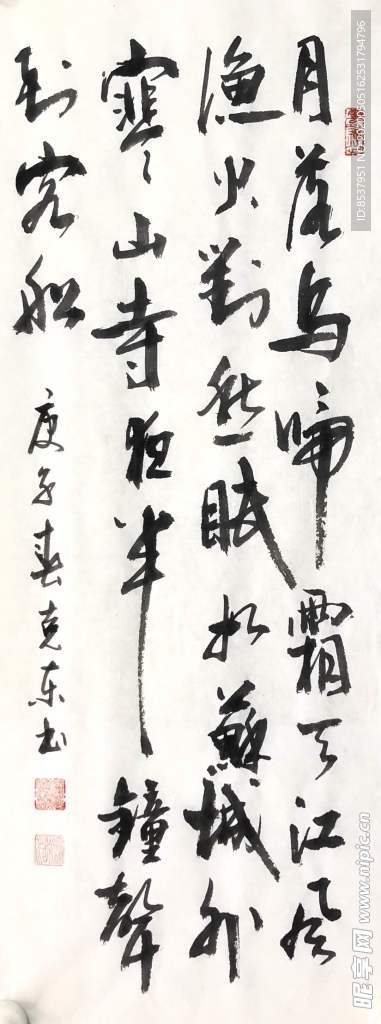 月落烏啼霜天江楓
漁火對愁眠姑蘇城外
寒山寺夜半鐘聲
到客船
庚子春克东书
ID:8537951 NO:20200505162531794796
昵享网 www.nipic.cn